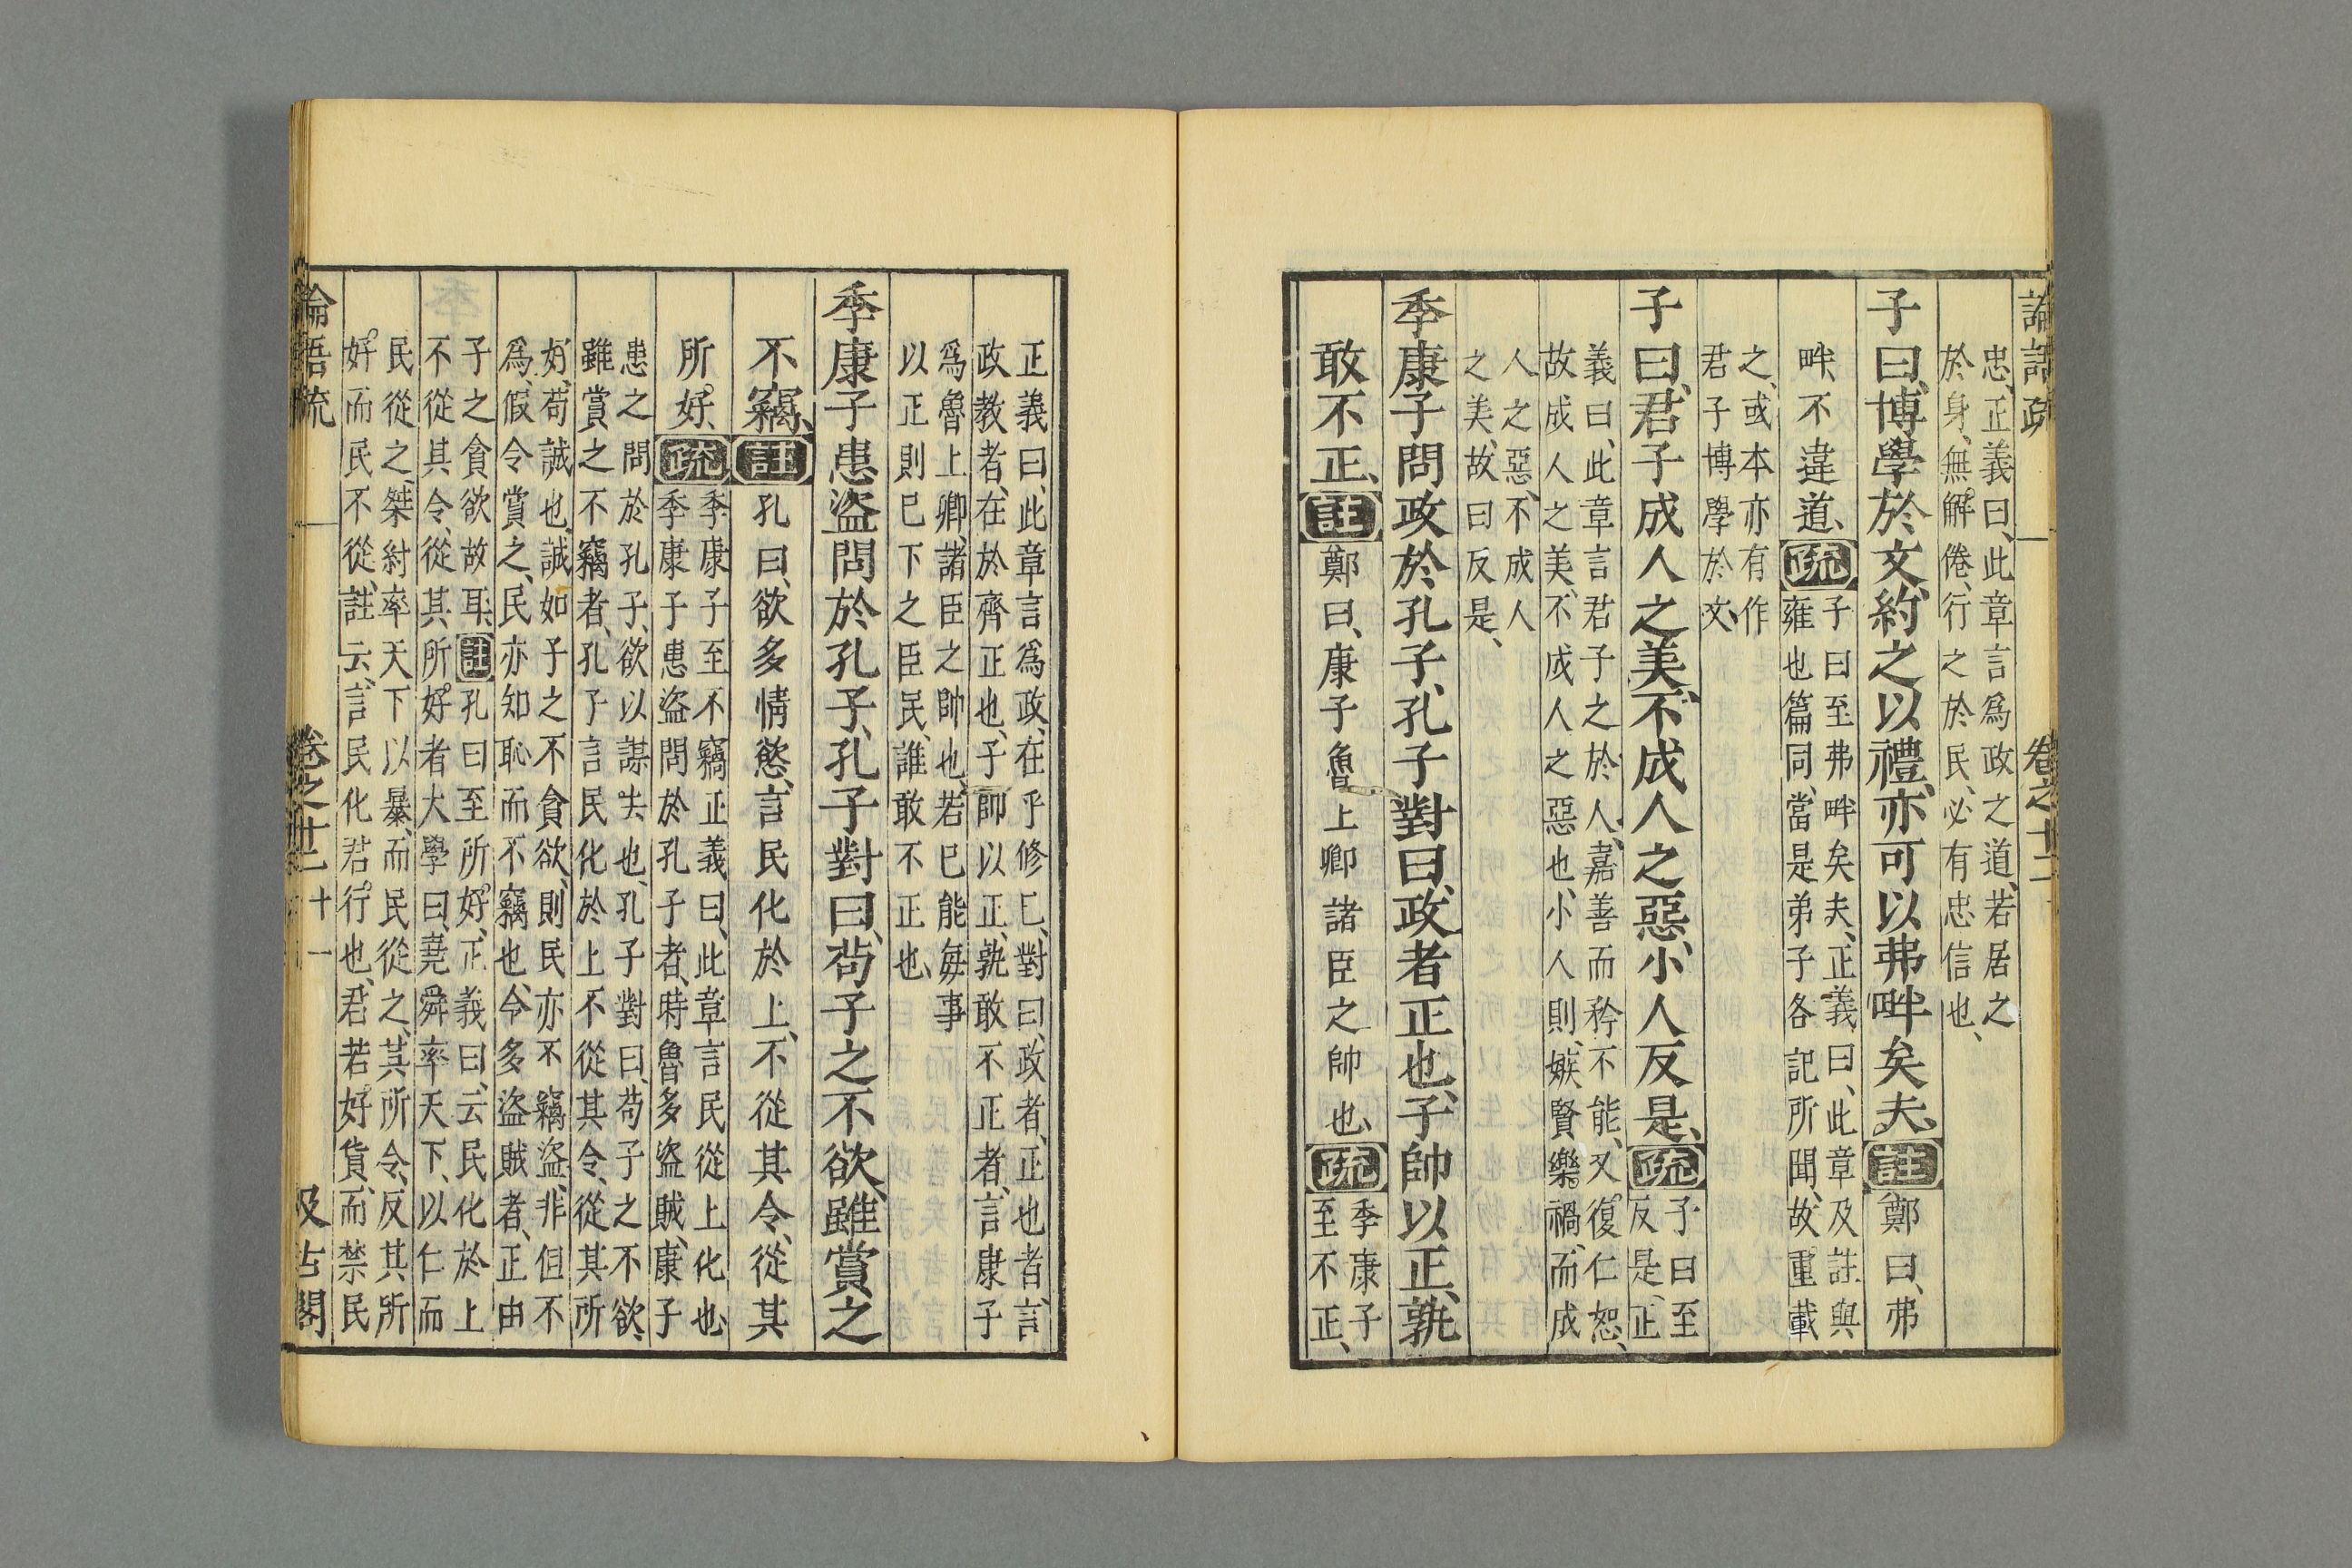 論語疏
卷之十二
忠、正義曰、此章言爲政之道、若居之
於身、無解倦、行之於民、必有忠信也、
子曰、博學於文、約之以禮、亦可以弗畔矣夫、註鄭曰、弗
畔、不違道、疏
子曰至弗畔矣夫、正義曰、此章及註與
雍也篇同、當是弟子各記所聞、故重載
之、或本亦有作
君子博學於文、
子曰、君子成人之美、不成人之惡、小人反是、疏
子曰至
反是、正
義曰、此章言君子之於人、嘉善而矜不能、又復仁恕、
故成人之美、不成人之惡也、小人則、嫉賢樂禍、而成
人之惡、不成人
之美、故曰反是、
季康子問政於孔子、孔子對曰、政者正也、子帥以正、孰
敢不正、註鄭曰、康子魯上卿諸臣之帥也、疏
季康子
至不正、
正義曰、此章言爲政、在乎修己、對曰、政者、正也者、言
政教者、在於齊正也、子帥以正、孰敢不正者、言康子
爲魯上卿、諸臣之帥也、若已能每事
以正則已下之臣民、誰敢不正也、
季康子患盜問於孔子、孔子對曰、苟子之不欲、雖賞之
不竊、註孔曰、欲多情慾、言民化於上、不從其令、從其
所好、疏
季康子至不竊正義曰、此章言民從上化也、
季康子患盜問於孔子者、時魯多盜賊、康子
患之問於孔子、欲以謀去也、孔子對曰、苟子之不欲、
雖賞之不竊者、孔子言民化於上不從其令、從其所
好、苟誠也、誠如子之不貪欲、則民亦不竊盜、非但不
爲、假令賞之、民亦知恥而不竊也、今多盜賊者、正由
子之貪欲故耳、註孔曰至所好、正義曰、云民化於上
不從其令、從其所好者大學曰、堯舜率天下、以仁而
民從之、桀紂率天下以暴、而民從之、其所令、反其所
好、而民不從、註云、言民化君行也、君若好貨、而禁民
論語疏
卷之十二
十一
汲古閣